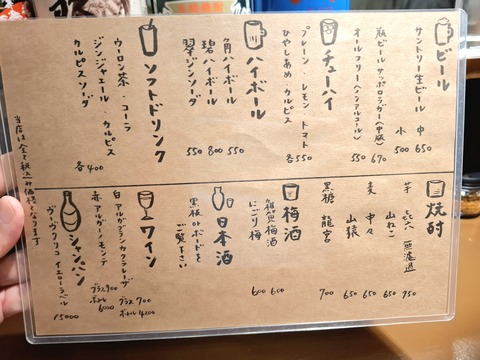 ビール
サントリー生ビール 中 650
小 500
瓶ビール サッポロラガー(中瓶) 670
オールフリー(ノンアルコール) 550
チューハイ
プレーン・レモン トマト
ひやしあめ・カルピス 各550
ハイボール
角ハイボール 550
碧ハイボール 800
翠ジンソーダ 550
ソフトドリンク
ウーロン茶・コーラ
ジンジャエール・カルピス
カルピスソーダ 各400
焼酎
芋 㐂六 無濾過 750
山ねこ 650
麦 中々 650
山猿 650
黒糖 龍宮 700
梅酒
雑賀梅酒 600
にごり梅 600
日本酒
黒板のボードを
ご覧下さい
ワイン
白 アルガブランカ クラレーザ グラス 700
ボトル 4200
赤 アルガーノ モンテ グラス 900
ボトル 6000
シャンパン
ヴーヴクリコ イエローラベル 15000
当店は全て税込み価格になります